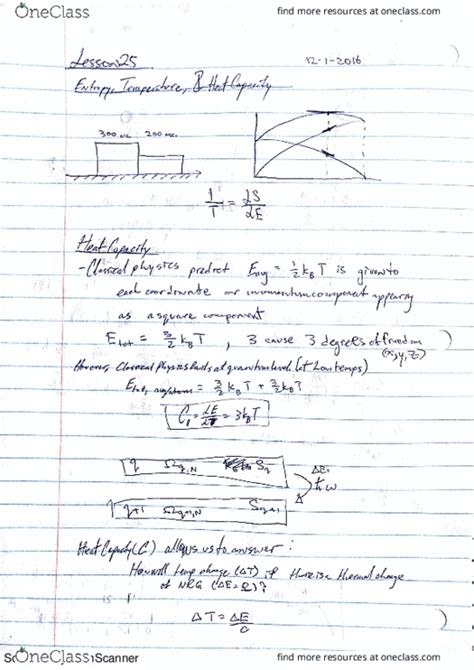 OneClass
find more resources at oneclass.com
Lesson 25
12-1-2016
Entropy, Temperature, & Heat Capacity
300 200
1/T = ∂S/∂E
Heat Capacity
- Classical physics predict Eavg = 1/2 kB T is given to
each coordinate or momentum component appearing
as a square component
Etot = 3/2 kB T, 3 cause 3 degrees of freedom
(x, y, z)
Classical physics fails at quantum level (at Low temps)
Etot, = 3/2 kB T + 3/2 kB T
C = = 3kB T
q Ωq,N Sq
ΔE
ħω
q+1 Ωq+1,N Sq+1
Heat Capacity (C) allows us to answer:
How will temp change (ΔT) if there is a thermal change
of NRG (ΔE=Q)?
ΔT = ΔE/C
OneClass
Scanner
find more resources at oneclass.com